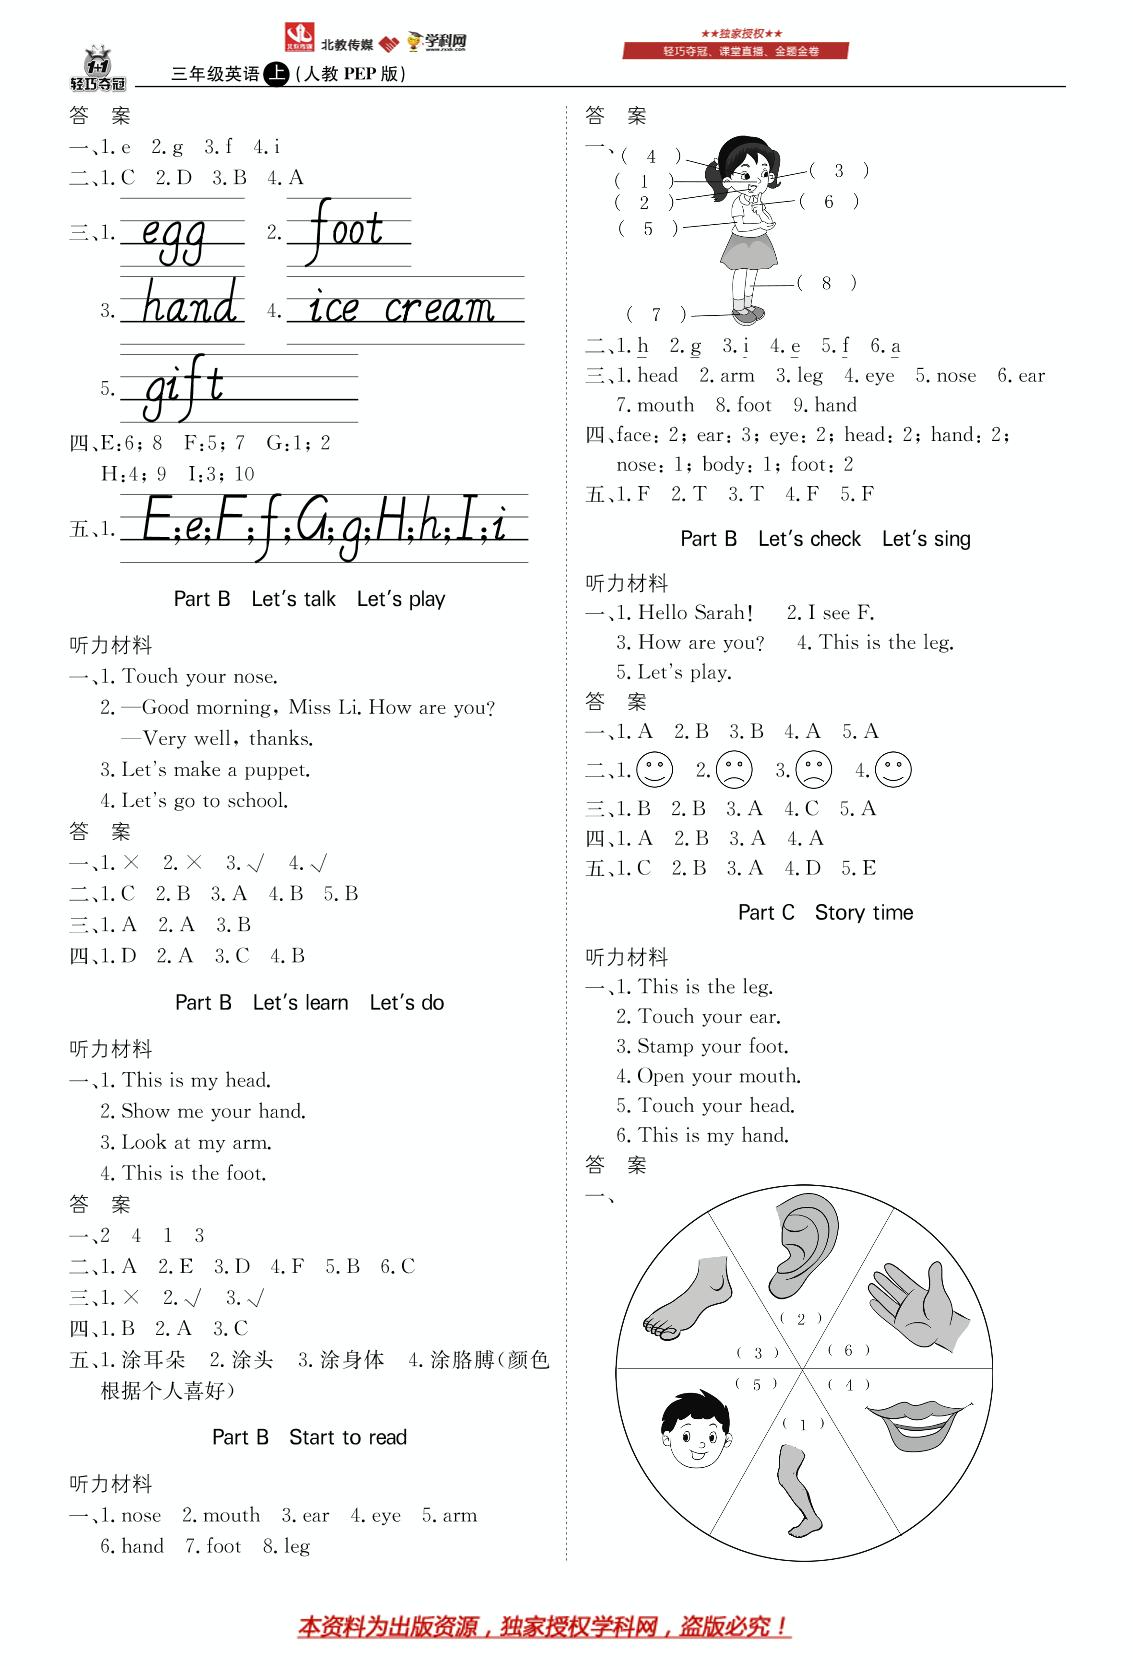 北教传媒
北教传媒 学科网
www.zxxk.com
★★独家授权★★
轻巧夺冠、课堂直播、金题金卷
1+1
轻巧夺冠
三年级英语上(人教 PEP 版)
答 案
一、1. e 2. g 3. f 4. i
二、1. C 2. D 3. B 4. A
三、1. egg 2. foot
3. hand 4. ice cream
5. gift
四、E:6; 8 F:5; 7 G:1; 2
H:4; 9 I:3; 10
五、1. E;e;F;f;G;g;H;h;I;i
Part B Let's talk Let's play
听力材料
一、1. Touch your nose.
2. —Good morning, Miss Li. How are you?
—Very well, thanks.
3. Let's make a puppet.
4. Let's go to school.
答 案
一、1. × 2. × 3. √ 4. √
二、1. C 2. B 3. A 4. B 5. B
三、1. A 2. A 3. B
四、1. D 2. A 3. C 4. B
Part B Let's learn Let's do
听力材料
一、1. This is my head.
2. Show me your hand.
3. Look at my arm.
4. This is the foot.
答 案
一、2 4 1 3
二、1. A 2. E 3. D 4. F 5. B 6. C
三、1. × 2. √ 3. √
四、1. B 2. A 3. C
五、1. 涂耳朵 2. 涂头 3. 涂身体 4. 涂胳膊(颜色
根据个人喜好)
Part B Start to read
听力材料
一、1. nose 2. mouth 3. ear 4. eye 5. arm
6. hand 7. foot 8. leg
答 案
一、
( 4 )
( 3 )
( 1 )
( 2 )
( 6 )
( 5 )
( 8 )
( 7 )
二、1. h 2. g 3. i 4. e 5. f 6. a
三、1. head 2. arm 3. leg 4. eye 5. nose 6. ear
7. mouth 8. foot 9. hand
四、face: 2; ear: 3; eye: 2; head: 2; hand: 2;
nose: 1; body: 1; foot: 2
五、1. F 2. T 3. T 4. F 5. F
Part B Let's check Let's sing
听力材料
一、1. Hello Sarah! 2. I see F.
3. How are you? 4. This is the leg.
5. Let's play.
答 案
一、1. A 2. B 3. B 4. A 5. A
二、1. 2. 3. 4.
三、1. B 2. B 3. A 4. C 5. A
四、1. A 2. B 3. A 4. A
五、1. C 2. B 3. A 4. D 5. E
Part C Story time
听力材料
一、1. This is the leg.
2. Touch your ear.
3. Stamp your foot.
4. Open your mouth.
5. Touch your head.
6. This is my hand.
答 案
一、
( 2 )
( 3 ) ( 6 )
( 5 ) ( 4 )
( 1 )
本资料为出版资源，独家授权学科网，盗版必究！